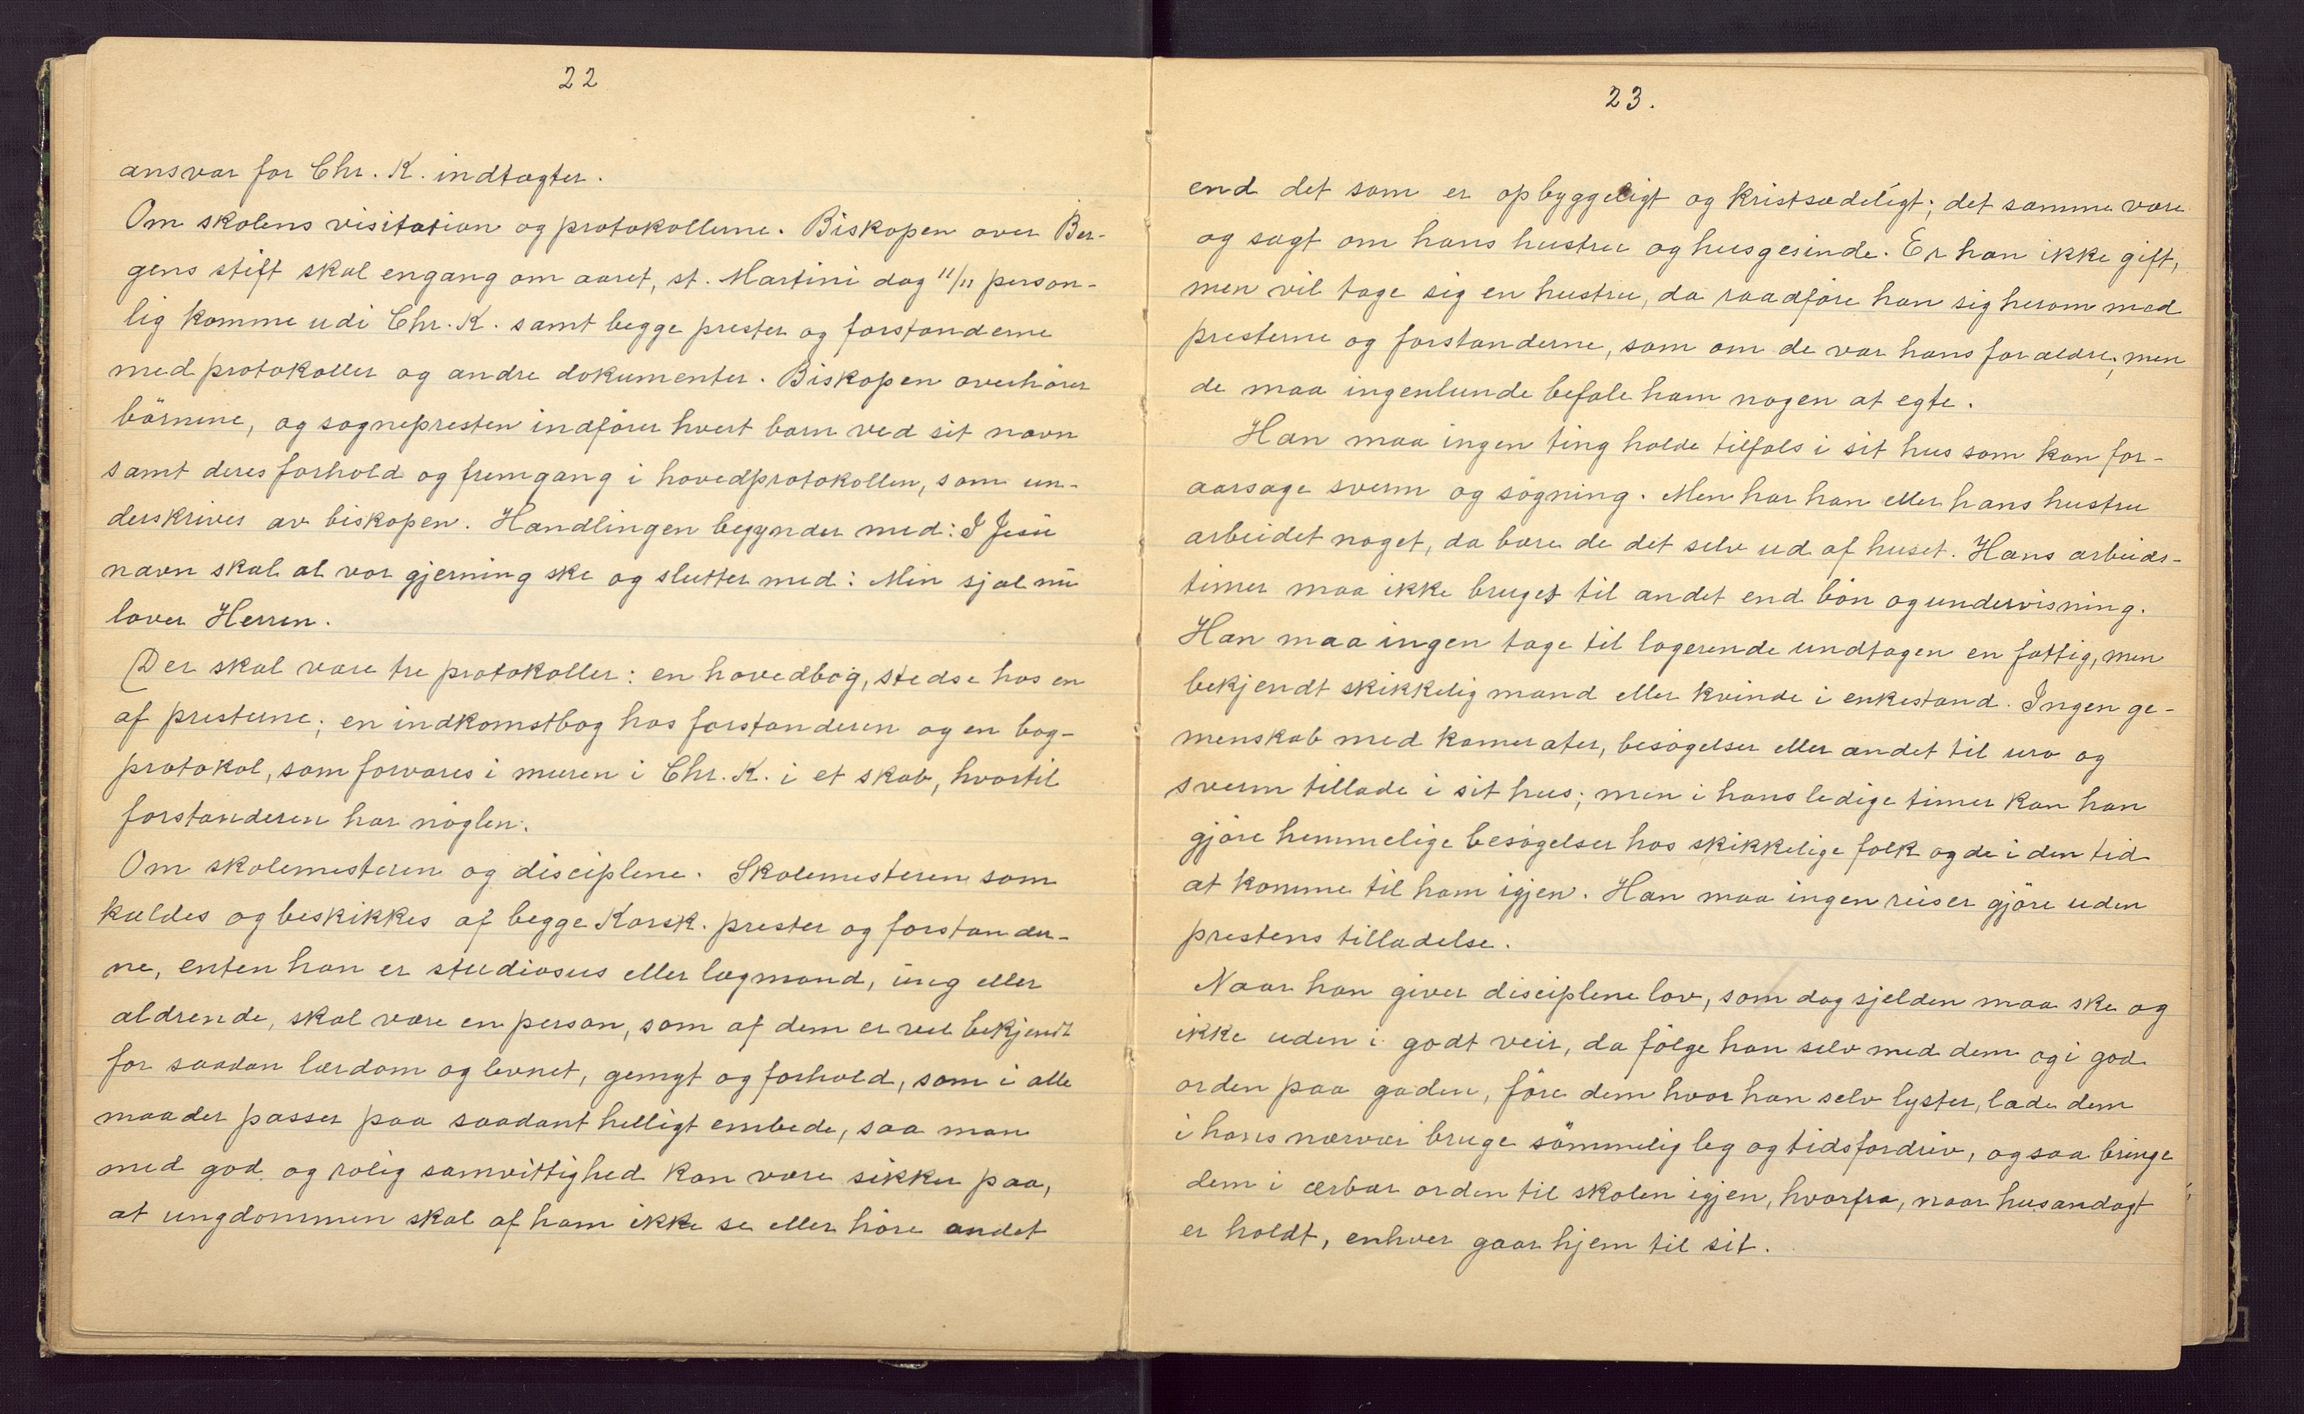 22
ansvar for Chr. K. indtægter.
Om skolens visitation og protokollerne. Biskopen over Ber-
gens stift skal engang om aaret, st. Martini dag 11/11 person-
lig komme udi Chr. K. samt begge prester og forstanderne
med protokoller og andre dokumenter. Biskopen overhører
börnene, og sognepresten indfører hvert barn ved sit navn
samt deres forhold og fremgang i hovedprotokollen, som un-
derskrives av biskopen. Handlingen begynder med: I Jesu
navn skal al vor gjerning ske og slutter med: Min sjæl nu
lover Herren.
Der skal være tre protokoller: en hovedbog, stedse hos en
af presterne; en indkomstbog hos forstanderen og en bog-
protokol, som forvares i muren i Chr. K. i et skab, hvortil
forstanderen har nöglen.
Om skolemesteren og disciplene. Skolemesteren som
kaldes og beskikkes af begge Korsk. prester og forstander-
ne, enten han er studiosus eller lægmand, ung eller
aldrende, skal være en person, som af dem er vel bekjendt
for saadan lærdom og levnet, gemyt og forhold, som i alle
maader passer paa saadant helligt embede, saa man
med god og rolig samvittighed kan være sikker paa,
at ungdommen skal af ham ikke se eller höre andet
23.
end det som er opbyggeligt og kristsædeligt; det samme være
og sagt om hans hustru og husgesinde. Er han ikke gift,
men vil tage sig en hustru, da raadföre han sig herom med
presterne og forstanderne, som om de var hans forældre, men
de maa ingenlunde befale ham nogen at egte.
Han maa ingen ting holde tilfals i sit hus som kan for-
aarsage sverm og sögning. Men har han eller hans hustru
arbeidet noget, da bære de det selv ud af huset. Hans arbeids-
timer maa ikke bruges til andet end bön og undervisning.
Han maa ingen tage til logerende undtagen en fattig, men
bekjendt skikkelig mand eller kvinde i enkestand. Ingen ge-
menskab med kamerater, besögelser eller andet til uro og
sverm tillade i sit hus; men i hans ledige timer kan han
gjöre hemmelige besögelser hos skikkelige folk og de i den tid
at komme til ham igjen. Han maa ingen reiser gjöre uden
prestens tilladelse.
Naar han giver disciplene lov, som dog sjelden maa ske og
ikke uden i godt veir, da fölge han selv med dem og i god
orden paa gaden, före dem hvor han selv lyster, lade dem
i hans nærvær bruge sömmelig leg og tidsfordriv, og saa bringe
dem i ærbar orden til skolen igjen, hvorfra, naar husandagt
er holdt, enhver gaar hjem til sit.